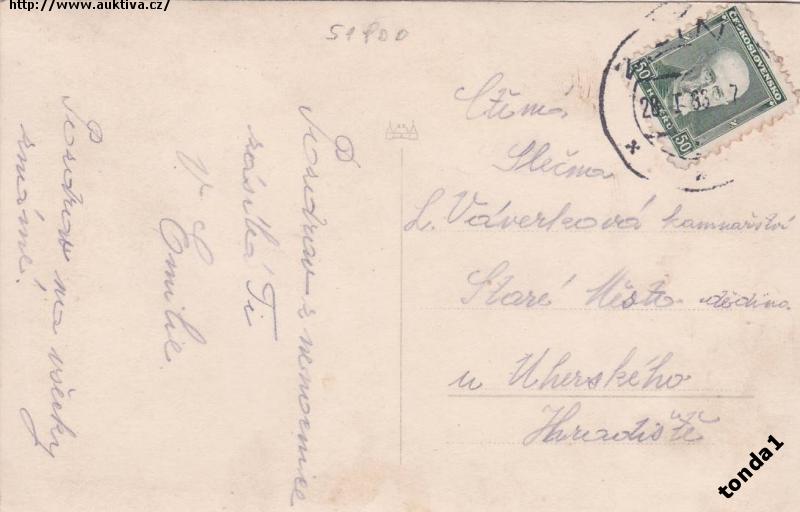 http://www.auktiva.cz/
51900
ČESKOSLOVENSKO
50
50
Ctěná
Slečna
L. Váverková kamnařství
Staré Město dědina
u Uherského
Hradiště
Pozdrav z nemocnice
zásílá Ti
V. S.
Emilie.
Pozdrav na všecky
známé!
tonda1